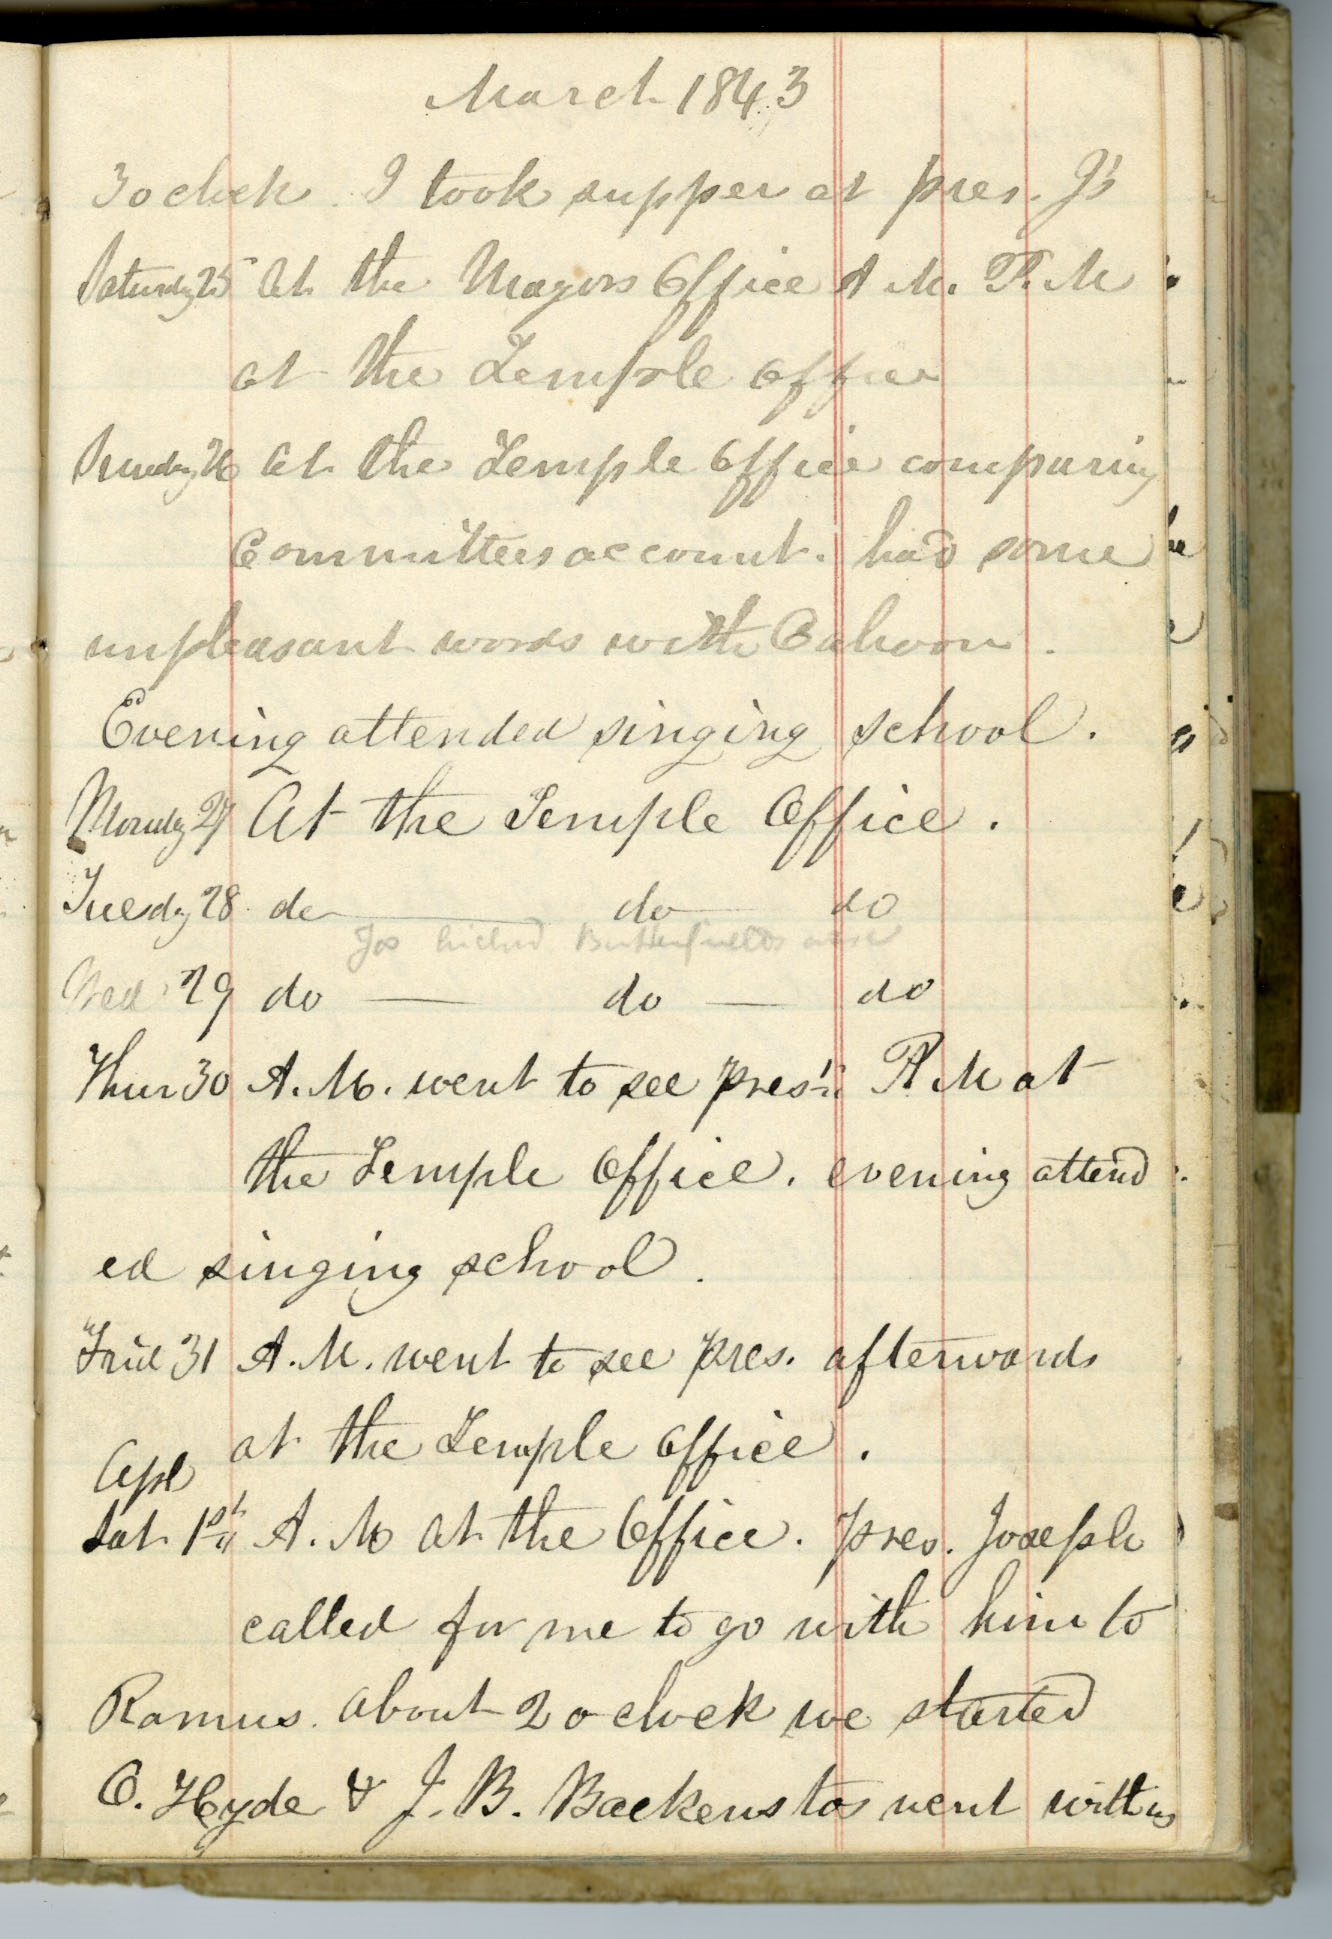 March 1843
3 o clock. I took supper at pres. J's
Saturdy 25 At the Mayors Office A M. P. M
at the Temple office
Sunday 26 At the Temple Office comparing
Committees account. had some
unpleasant words with Cahoon.
Evening attended singing school.
Monday 27 At the Temple Office.
Tuesdy 28 do do do
Jos kicked Butterfields arse
Wed 29 do do do
Thur 30 A. M. went to see pres't P M at
the Temple Office. evening attend
ed singing school.
Frid 31 A. M. went to see pres. afterwards
at the Temple office.
Apl
Sat 1st A. M at the Office. pres. Joseph
called for me to go with him to
Ramus. about 2 o clock we started
O. Hyde & J. B. Backenstos went with us